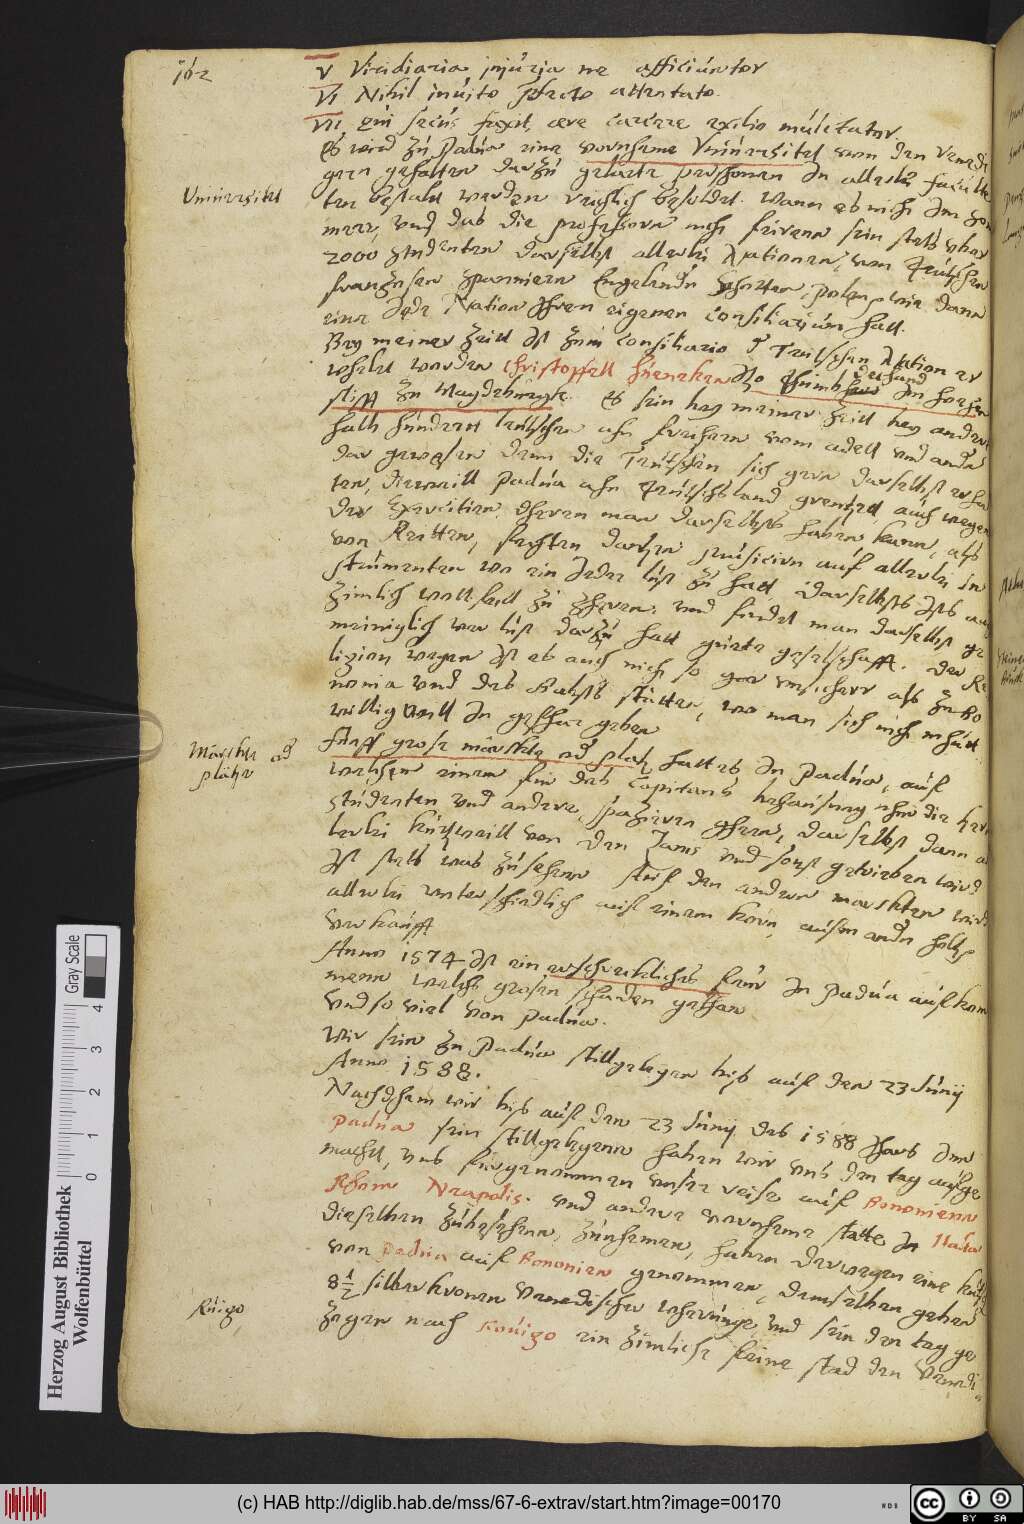 162
V Viridiaria injúria ne afficiúntor
VI Nihil inúito Praefecto attentato.
VII, Qúi secús faxit, aere carcere exilio múlctator
Es wird zú Padúa eine vornheme Vniúersitet von den Venedi
gern gehalten darzú gelarte persohnen In allerlei facúlte
Vniúersitet
ten bestalt werden reichlich besoldet. Wann es nicht Im Som
mer, und das die professorn nicht feirenn sein stets vber
2000 Stúdenten daselbst allerlei Nationen, von Teútschen
franzosen Spanniern Engelendern Schotten, polen, wie dann
eine Jede Nation Ihren eigenen consiliariúm hatt.
Bey meiner Zeitt Ist Zúm Consiliario der Teútschen Nation er
wehlet worden Christoffell Húeneken Itzo Thúmbherr In hohen
stifft zú Magdebúrgk. Es sein bey meiner Zeitt bey andert
halb húndertt teútschen ahn freihern vom adell und andern
da gewesen denn die Teútschen sich gern daselbst erhal
ten, dieweill Padúa ahn Teútschland grentzet, aúch wegen
der Exercitien, deren man daselbst haben kann, als
von Reitten, fechten dantzen músiciren aúf allerlei In
strúmenten wo ein Jeder lúst zú hatt, daselbst Ists aúch
zimlich wollfeill zú Zheren, und findet man daselbst ge
meiniglich wer lúst darzú hatt gúete geselschafft. Der Re
ligion wegen Ist es aúch nicht so gar vnsicher als zú Bo
nonia und des Babsts stetten, wo man sich nicht múth
willig will In gefhar geben
Marckte od
plätze
Fúnff grose märckte od platz hatt es In Padúa, aúf
welchen einem fúr des Capitans behaúsúng ahn die hern
stúdenten und andere, spatzieren gehen, daselbst dann al
lerlei kúrtzweill von den Zanis und sonst getrieben wird
Ist stets was zúsehen Aúf den andern marckten wird
allerlei vnterschiedlich aúf einem korn, aúfm andern holtz
verkaúfft
Anno 1574 Ist ein erschreckliches feúr In Padúa aúfkom
men welchs grosen schaden gethan
Und so viel von Padúa.
Wir sein zú Padúa stillgelegen bis aúf den 23 Júnij
Anno 1588.
Nachdem wir bis aúf den 23 Júnij des 1588 Ihars Inn
Padúa sein stillgelegenn haben wir vns den tag aúfge
macht, vns fúrgenommen vnser reise aúf Bononienn
Rhom Neapolis. und andere vornheme stette In Italia
dieselben zúbesehenn, zúnhemen, haben derwegen eine kútsch
von Padúa aúf Bononien genommen, demselben geben
8 1/2 silberkronen Venedischer wehrúnge, und sein den tag ge
Rúigo,
zogen nach Roúigo ein zimlich feine stad den Venedi
Herzog August Bibliothek
Wolfenbüttel
Gray Scale
0 1 2 3 4
(c) HAB http://diglib.hab.de/mss/67-6-extrav/start.htm?image=00170
WDB
cc BY SA